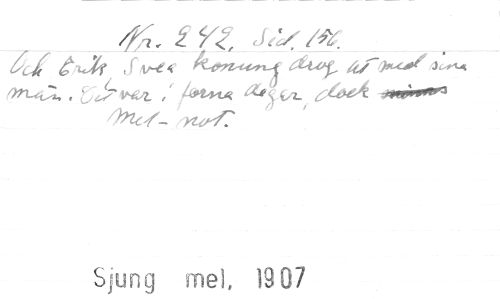 Nr. 242. Sid. 156.
Och Erik, Svea konung drog ut med sina
män. Det var i forna dagar, dock minns
Mel-not.
Sjung mel, 1907